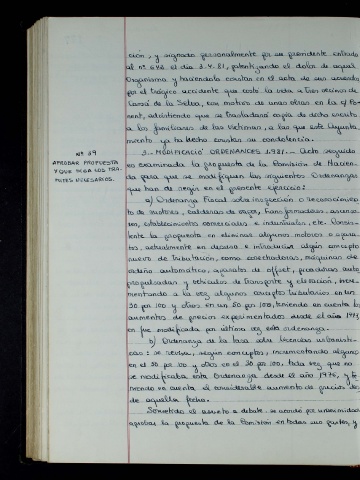 ción, y signado personalmente por su presidente entrado
al nº 646 el día 3.4.81, patentizando el dolor de aquel
Organismo y haciéndola constar en el acta de sus acuerdos
por el trágico accidente que costó la vida a tres vecinos de
Cassá de la Selva, con motivo de unas obras en la c/ Po-
nent, advirtiendo que se trasladará copia de dicho escrito
a los familiares de las víctimas, a las que este Ayunta-
miento ya ha hecho constar su condolencia.
Nº 49
APROBAR PROPUESTA
Y QUE SIGA LOS TRA-
MITES NECESARIOS.
2.- MODIFICACIÓ ORDENANCES 1981.- Acto seguido
es examinada la propuesta de la Comisión de Hacien-
da para que se modifiquen las siguientes Ordenanzas
que han de regir en el presente ejercicio:
a) Ordenanza Fiscal sobre inspección o reconocimien-
to de motores, calderas de vapor, transformadores, ascenso-
res, establecimientos comerciales e industriales, etc. Consis-
te la propuesta en eliminar algunos motores o apara-
tos, actualmente en desuso e introducir algún concepto
nuevo de tributación, como cosechadoras, máquinas de
ordeño automático, aparatos de offset, grandes auto
propulsadas y vehículos de transporte y elevación, incre-
mentando a la vez algunos conceptos tributarios en un
30 por 100 y otros en un 50 por 100, teniendo en cuenta los
aumentos de precios experimentados desde el año 1977
en que fue modificada por última vez esta ordenanza.
b) Ordenanza de la tasa sobre licencias urbanísti-
cas: se revisa, según conceptos, incrementando algunos
en el 50 por 100 y otros en el 30 por 100, toda vez que no
se modificaba esta Ordenanza desde el año 1976, y te-
niendo en cuenta el considerable aumento de precios des-
de aquella fecha.
Sometido el asunto a debate, se acordó por unanimidad
aprobar la propuesta de la Comisión en todas sus partes, y